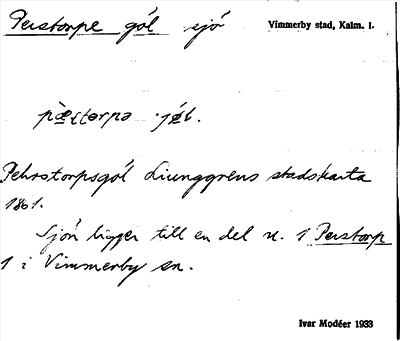 Perstorpe göl sjö
Vimmerby stad, Kalm. l.
Pehrstorpsgöl Liunggrens stadskarta
1861.
Sjön ligger till en del u. 1 Perstorp
1 i Vimmerby sn.
Ivar Modéer 1933